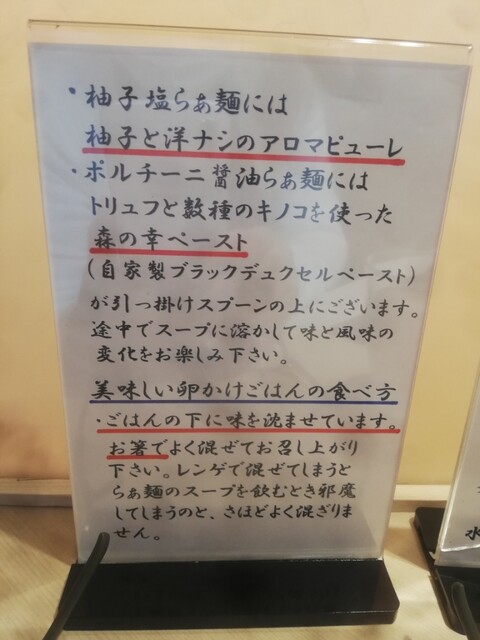 ・柚子塩らぁ麺には
柚子と洋ナシのアロマピューレ
・ポルチーニ醤油らぁ麺には
トリュフと数種のキノコを使った
森の幸ペースト
(自家製ブラックデュクセルペースト)
が引っ掛けスプーンの上にございます。
途中でスープに溶かして味と風味の
変化をお楽しみ下さい。
美味しい卵かけごはんの食べ方
・ごはんの下に味を沈ませています。
お箸でよく混ぜてお召し上がり
下さい。レンゲで混ぜてしまうと
らぁ麺のスープを飲むとき邪魔
してしまうのと、さほどよく混ざりま
せん。
水